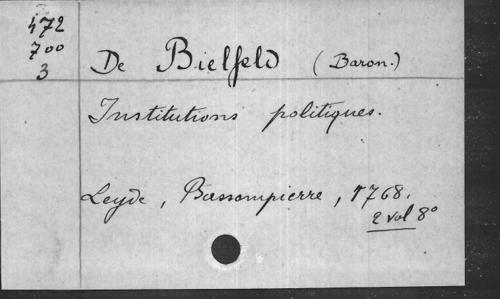 472
700
3
De Bielfeld (Baron.)
Institutions politiques.
Leyde, Bassompierre, 1768.
2 vol 8°